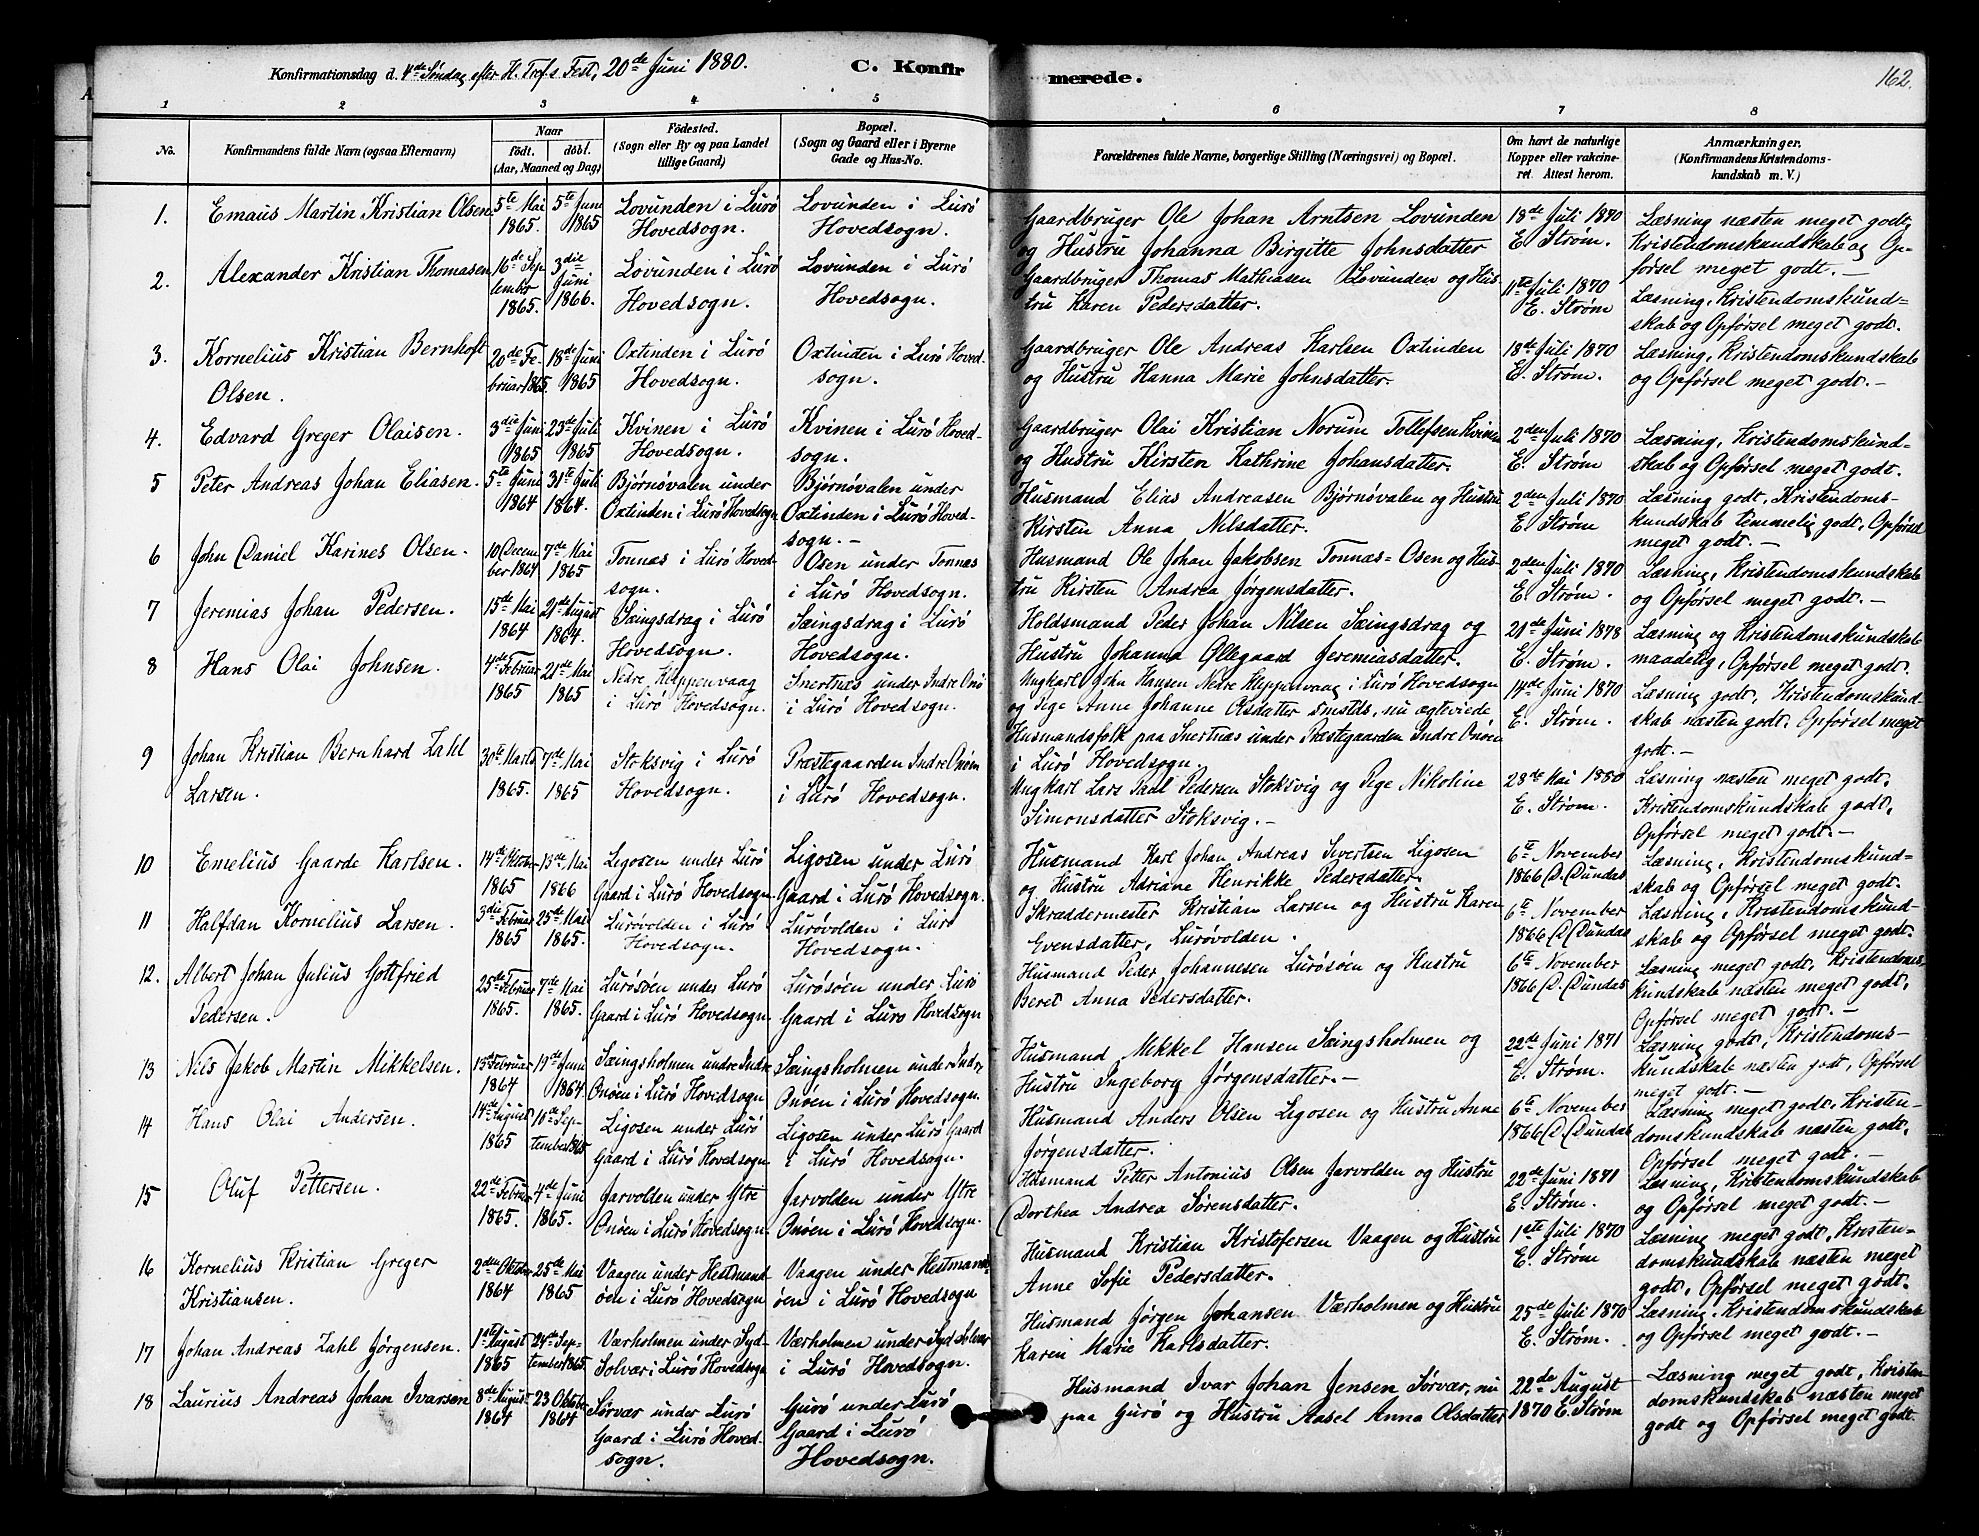 Konfirmationsdag d. 4de Søndag efter H. Tref.s Fest, 20de Juni 1880.
C. Konfirmerede.
162.
1 2 3 4 5 6 7 8
No.
Konfirmandens fulde Navn (ogsaa Efternavn)
Naar
Født. døbt.
(Aar, Maaned og Dag)
Fødested.
(Sogn eller By og paa Landet
tillige Gaard)
Bopæl.
(Sogn og Gaard eller i Byerne
Gade og Hus-No.
Forældrenes fulde Navne, borgerlige Stilling (Næringsvei) og Bopæl.
Om havt de naturlige
Kopper eller vakcine-
ret. Attest herom.
Anmærkninger.
(Konfirmandens Kristendoms-
kundskab m. V.)
1. Emaus Martin Kristian Olsen
5te Mai
1865.
5te Juni
1865
Lovunden i Lurö
Hovedsogn.
Lovunden i Lurö
Hovedsogn.
Gaardbruger Ole Johan Arntsen Lovunden
og Hustru Johanna Birgitte Johnsdatter
18de Juli 1870
E. Strøm.
Læsning næsten meget godt,
Kristendomskundskab og Op-
førsel meget godt. —
2. Alexander Kristian Thomasen
16de Sep
tember
1865.
3die
Juni
1866.
Lovunden i Lurö
Hovedsogn.
Lovunden i Lurö
Hovedsogn.
Gaardbruger Thomas Mathiasen Lovunden og Hus-
tru Karen Pedersdatter.
11te Juli 1870
E. Strøm
Læsning, Kristendomskund-
skab og Opførsel meget godt.
3. Kornelius Kristian Bernhoft
Olsen.
20de Fe-
bruar 1865
18de Juni
1865
Oxtinden i Lurö
Hovedsogn.
Oxtinden i Lurö Hoved-
sogn.
Gaardbruger Ole Andreas Karlsen Oxtinden
og Hustru Hanna Marie Johnsdatter.
18de Juli 1870
E. Strøm.
Læsning, Kristendomskundskab
og Opførsel meget godt. —
4. Edvard Greger Olaisen.
3die Juni
1865
23de Juli
1865
Kvinen i Lurö
Hovedsogn.
Kvinen i Lurö Hoved-
sogn.
Gaardbruger Olai Kristian Norum Tollefsen Kvinen
og Hustru Kirsten Kathrine Johansdatter.
2den Juli 1870
E. Strøm
Læsning, Kristendomskund-
skab og Opførsel meget godt.
5 Peter Andreas Johan Eliasen.
5te Juni
1864
31te Juli
1864.
Bjørnøvalen under
Oxtinden i Lurö Hovedsogn
Bjørnøvalen under
Oxtinden i Lurö Hoved-
sogn. —
Husmand Elias Andreasen Bjørnøvalen og Hustru
Kirsten Anna Nilsdatter.
2den Juli 1870
E. Strøm
Læsning godt, Kristendoms-
kundskab temmelig godt, Opførsel
meget godt. —
6 John Daniel Karines Olsen.
10 Decem
ber 1864
7de Mai
1865
Tonnæs i Lurö Hoved-
sogn.
Osen under Tonnæs
i Lurö Hovedsogn.
Husmand Ole Johan Jakobsen Tonnæs-Osen og Hus-
tru Kirsten Andrea Jørgensdatter.
2den Juli 1870
E. Strøm.
Læsning, Kristendomskundskab
og Opførsel meget godt. —
7 Jeremias Johan Pedersen.
15de Mai
1864
21de August
1864.
Sæingsdrag i Lurö
Hovedsogn.
Sæingsdrag i Lurö
Hovedsogn.
Holdsmand Peder Johan Nilsen Sæingsdrag og
Hustru Johanna Ollegaard Jeremiasdatter.
21de Juni 1878
E. Strøm.
Læsning og Kristendomskundskab
maadelig, Opførsel meget godt.
8 Hans Olai Johnsen.
4de Februar
1865
21de Mai
1865
Nedre Kleppenvaag
i Lurö Hovedsogn.
Snertnæs under Indre Onö
i Lurö Hovedsogn.
Ungkarl John Hansen Nedre Kleppenvaag i Lurö Hovedsogn
og Pige Anne Johanne Olsdatter smstds, nu ægteviede
Husmandsfolk paa Snertnæs under Præstegaarden Indre Onöen
i Lurö Hovedsogn.
14de Juni 1870
E. Strøm.
Læsning godt, Kristendomskund-
skab næsten godt, Opførsel meget
godt. —
9 Johan Kristian Bernhard Zahl
Larsen.
30te Marts
1865.
7de Mai
1865
Stoksvig i Lurö
Hovedsogn.
Præstegaarden Indre Onöen
i Lurö Hovedsogn.
Ungkarl Lars Paul Pedersen Stoksvig og Pige Nikoline
Simonsdatter Stoksvig. —
28de Mai 1880
E. Strøm.
Læsning næsten meget godt.
Kristendomskundskab godt,
Opførsel meget godt. —
10 Emelius Gaarde Karlsen.
14de Oktober
1865
13de Mai
1866
Ligosen under Lurö
Gaard i Lurö Hovedsogn.
Ligosen under Lurö
Gaard i Lurö Hovedsogn.
Husmand Karl Johan Andreas Sivertsen Ligosen
og Hustru Adriane Henrikke Pedersdatter.
6te November
1866 D. Dundas
Læsning, Kristendomskund-
skab og Opførsel meget godt.
11 Halfdan Kornelius Larsen.
3die Februar
1865
25de Mai
1865.
Lurövolden i Lurö
Hovedsogn.
Lurövolden i Lurö
Hovedsogn.
Skræddermester Kristian Larsen og Hustru Karen
Evensdatter, Lurövolden.
6te November
1866 D. Dundas
Læsning, Kristendomskund-
skab og Opførsel meget godt.
12. Albert Johan Julius Gottfried
Pedersen.
25de Februar
1865.
7de Mai
1865.
Lurösöen under Lurö
Gaard i Lurö Hovedsogn.
Lurösöen under Lurö
Gaard i Lurö Hovedsogn
Husmand Peder Johannesen Lurösöen og Hustru
Beret Anna Pedersdatter.
6te November
1866 D. Dundas
Læsning meget godt, Kristendoms
kundskab næsten meget godt,
Opførsel meget godt. —
13 Nils Jakob Martin Mikkelsen.
15de Februar
1864
19de Juni
1864
Sæingsholmen under Indre
Onöen i Lurö Hovedsogn
Sæingsholmen under Indre
Onöen i Lurö Hovedsogn.
Husmand Mikkel Hansen Sæingsholmen og
Hustru Ingeborg Jørgensdatter. —
22de Juni 1871
E. Strøm.
Læsning godt, Kristendoms-
kundskab næsten godt, Opførsel
meget godt. —
14 Hans Olai Andersen.
14de August
1865
10de Sep-
tember 1865
Ligosen under Lurö
Gaard i Lurö Hovedsogn.
Ligosen under Lurö Gaard
i Lurö Hovedsogn.
Husmand Anders Olsen Ligosen og Hustru Anne
Jørgensdatter.
6te November
1866 D. Dundas
Læsning meget godt, Kristen-
domskundskab næsten godt,
Opførsel meget godt. —
15 Oluf Pettersen.
22de Februar
1865.
4de Juni
1865.
Jarvolden under Ytre
Onöen i Lurö Hovedsogn.
Jarvolden under Ytre
Onöen i Lurö Hovedsogn.
Husmand Petter Antonius Olsen Jarvolden og Hustru
Dorthea Andrea Sørensdatter.
22de Juni 1871
E. Strøm.
Læsning, Kristendomskundskab
og Opførsel meget godt. —
16 Kornelius Kristian Greger
Kristiansen.
2den Oktober
1864
25de Mai
1865
Vaagen under Hestmand-
öen i Lurö Hovedsogn
Vaagen under Hestmand-
öen i Lurö Hovedsogn
Husmand Kristian Kristofersen Vaagen og Hustru
Anne Sofie Pedersdatter.
1ste Juli 1870
E. Strøm
Læsning meget godt, Kristen-
domskundskab næsten meget
godt, Opførsel meget godt.
17 Johan Andreas Zahl Jørgensen.
1ste August
1865
24de Sep-
tember 1865.
Værholmen under Syd-
Solvær i Lurö Hovedsogn
Værholmen under Syd Solvær
i Lurö Hovedsogn.
Husmand Jørgen Johansen Værholmen og Hustru
Karen Marie Karlsdatter.
25de Juli 1870
E. Strøm.
Læsning, Kristendomskundskab
og Opførsel meget godt. —
18 Laurius Andreas Johan Ivarsen
8de August
1864
23 Oktober
1864
Sørvær under Lurö
Gaard i Lurö Hoved-
sogn.
Gurö under Lurö
Gaard i Lurö
Hovedsogn.
Husmand Ivar Johan Jensen Sørvær, nu
paa Gurö og Hustru Aasel Anna Olsdatter
22de August
1870 E. Strøm
Læsning meget godt, Kristen
domskundskab næsten meget
godt og Opførsel meget godt.